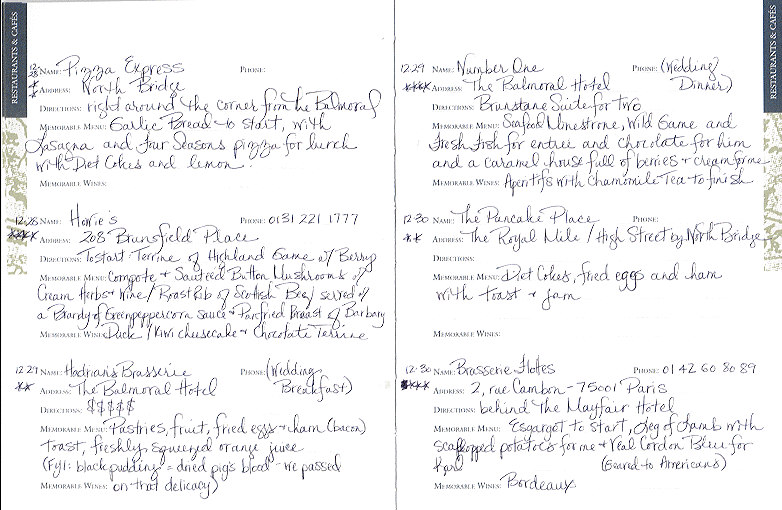 RESTAURANTS & CAFÉS
12-28 NAME: Pizza Express PHONE:
** ADDRESS: North Bridge
DIRECTIONS: right around the corner from the Balmoral
MEMORABLE MENU: Garlic Bread to start, with
Lasagna and Four Seasons pizza for lunch
with Diet Cokes and lemon.
MEMORABLE WINES:
12-28 NAME: Howie's PHONE: 0131 221 1777
**** ADDRESS: 208 Brunsfield Place
DIRECTIONS: To start Terrine of Highland Game w/ Berry
MEMORABLE MENU: Compote + Sauteed Button Mushrooms w/
Cream Herbs + Wine / Roast Rib of Scottish Beef served w/
a Brandy + Greenpeppercorn Sauce + Panfried Breast of Barbary
MEMORABLE WINES: Duck / Kiwi cheesecake + Chocolate Terrine
12-29 NAME: Hadrian's Brasserie PHONE: (Wedding
** ADDRESS: The Balmoral Hotel Breakfast)
DIRECTIONS: $$$$$
MEMORABLE MENU: Pastries, fruit, fried eggs + ham (bacon)
toast, freshly squeezed orange juice
(FYI: black pudding = dried pig's blood - we passed
MEMORABLE WINES: on that delicacy)
RESTAURANTS & CAFÉS
12-29 NAME: Number One PHONE: (Wedding
**** ADDRESS: The Balmoral Hotel Dinner)
DIRECTIONS: Brunstane Suite for Two
MEMORABLE MENU: Seafood Minestrone, Wild Game and
Fresh Fish for entree and chocolate for him
and a caramel house full of berries + cream for me
MEMORABLE WINES: Aperitifs with Chamomile Tea to finish
12-30 NAME: The Pancake Place PHONE:
** ADDRESS: The Royal Mile / High Street by North Bridge
DIRECTIONS:
MEMORABLE MENU: Diet Cokes, fried eggs and ham
with toast + jam
MEMORABLE WINES:
12-30 NAME: Brasserie Flottes PHONE: 01 42 60 80 89
**** ADDRESS: 2, rue Cambon - 75001 Paris
DIRECTIONS: behind the Mayfair Hotel
MEMORABLE MENU: Esgargot to start, Leg of Lamb with
scallopped potatoes for me + Veal Cordon Bleu for
(Geared to Americans)
MEMORABLE WINES: Bordeaux